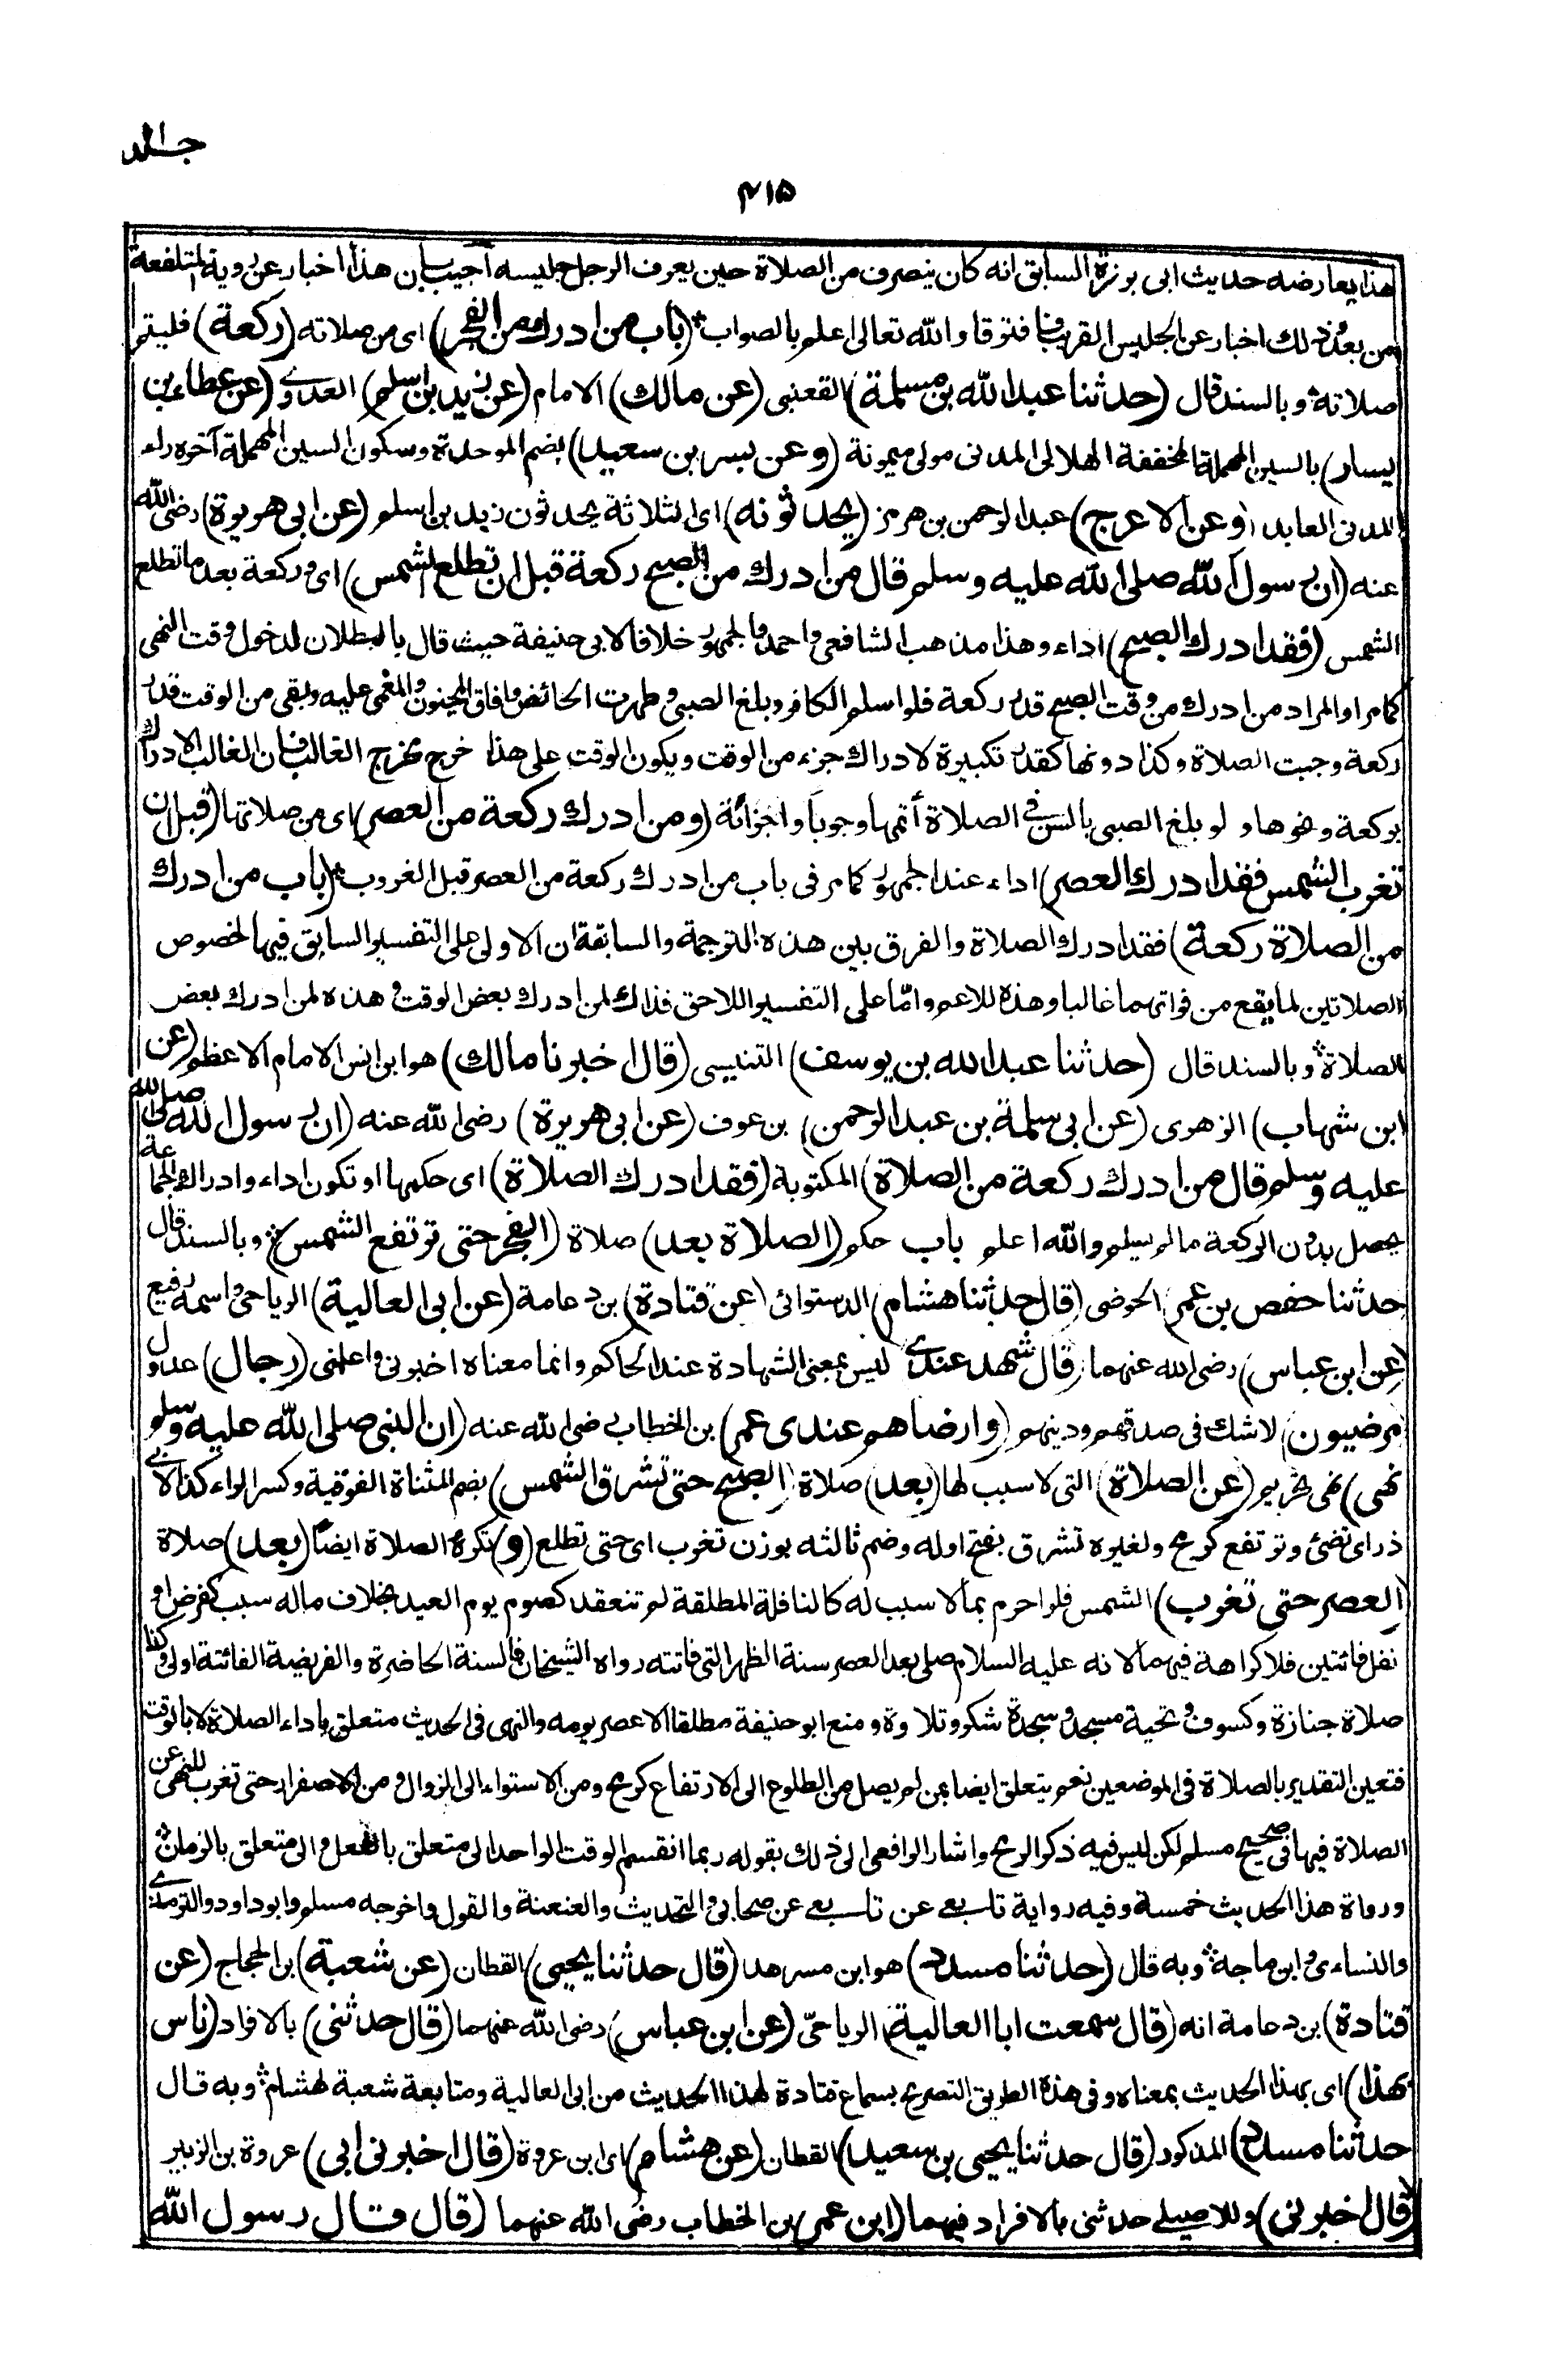 جلد
٤١٥
هذا يعارضه حديث ابى برزة السابق انه كان ينصرف من الصلاة حين يعرف الرجل جليسه اجيب بان هذا اخبار عن رؤية المتلفعة
من بعد وذلك اخبار عن الجليس القريب فافترقا والله تعالى اعلم بالصواب * (باب من ادرك من الفجر) اى من صلاته (ركعة) فليتم
صلاته وبالسند قال (حدثنا عبد الله بن مسلمة) القعنبى (عن مالك) الامام (عن زيد بن اسلم) العدوى (عن عطاء بن
يسار) بالسين المهملة المخففة الهلالى المدنى مولى ميمونة (وعن بسر بن سعيد) بضم الموحدة وسكون السين المهملة آخره راء
المدنى العابد (وعن الاعرج) عبد الرحمن بن هرمز (يحدثونه) اى الثلاثة يحدثون زيد بن اسلم (عن ابى هريرة) رضى الله
عنه (ان رسول الله صلى الله عليه وسلم قال من ادرك من الصبح ركعة قبل ان تطلع الشمس) اى وركعة بعد ما تطلع
الشمس (فقد ادرك الصبح) اداء وهذا مذهب الشافعى واحمد والجمهور خلافا لابى حنيفة حيث قال بالبطلان لدخول وقت النهى
كما مر او المراد من ادرك من وقت الصبح قدر ركعة فلو اسلم الكافر وبلغ الصبى وطهرت الحائض وافاق المجنون والمغمى عليه وبقى من الوقت قدر
ركعة وجبت الصلاة وكذا دونها كقدر تكبيرة لادراك جزء من الوقت ويكون الوقت على هذا خرج مخرج الغالب فان الغالب الادراك
بركعة ونحوها ولو بلغ الصبى بالسن فى الصلاة أتمها وجوبا واجزأته (ومن ادرك ركعة من العصر) اى من صلاتها (قبل ان
تغرب الشمس فقد ادرك العصر) اداء عند الجمهور كما مر فى باب من ادرك ركعة من العصر قبل الغروب * (باب من ادرك
من الصلاة ركعة) فقد ادرك الصلاة والفرق بين هذه الترجمة والسابقة ان الاولى على التفسير السابق فيها لخصوص
الصلاتين لما يقع من فواتهما غالبا وهذه للاعم وامّا على التفسير اللاحق فذاك لمن ادرك بعض الوقت وهذه لمن ادرك بعض
الصلاة وبالسند قال (حدثنا عبد الله بن يوسف) التنيسى (قال اخبرنا مالك) هو ابن انس الامام الاعظم (عن
ابن شهاب) الزهرى (عن ابى سلمة بن عبد الرحمن) بن عوف (عن ابى هريرة) رضى الله عنه (ان رسول الله صلى الله
عليه وسلم قال من ادرك ركعة من الصلاة) المكتوبة (فقد ادرك الصلاة) اى حكمها او تكون اداء وادراك الجماعة
يحصل بدون الركعة ما لم يسلم والله اعلم باب حكم (الصلاة بعد) صلاة (الفجر حتى ترتفع الشمس) وبالسند قال
حدثنا حفص بن عمر) الحوضى (قال حدثنا هشام) الدستوائى (عن قتادة) بن دعامة (عن ابى العالية) الرياحى واسمه رفيع
(عن ابن عباس) رضى الله عنهما (قال شهد عندى) ليس بمعنى الشهادة عند الحاكم وانما معناه اخبرنى واعلمنى (رجال) عدول
(مرضيون) لا شك فى صدقهم ودينهم (وارضاهم عندى عمر) بن الخطاب رضى الله عنه (ان النبى صلى الله عليه وسلم
نهى) نهى تحريم (عن الصلاة) التى لا سبب لها (بعد) صلاة (الصبح حتى تشرق الشمس) بضم المثناة الفوقية وكسر الراء كذا لابى
ذر اى تضئ وترتفع كرمح ولغيره تشرق بفتح اوله وضم ثالثه بوزن تغرب اى حتى تطلع (و) تكره الصلاة ايضاً (بعد) صلاة
(العصر حتى تغرب) الشمس فلو احرم بما لا سبب له كالنافلة المطلقة لم تنعقد كصوم يوم العيد بخلاف ما له سبب كفرض او
نفل فائتين فلا كراهة فيهما لانه عليه السلام صلى بعد العصر سنة الظهر التى فاتته رواه الشيخان فالسنة الحاضرة والفريضة الفائتة اولى وكذا
صلاة جنازة وكسوف وتحية مسجد وسجدة شكر وتلاوة ومنع ابو حنيفة مطلقا الا عصر يومه والنهى فى الحديث متعلق باداء الصلاة لا بالوقت
فتعين التقدير بالصلاة فى الموضعين نعم يتعلق ايضا بمن لم يصل من الطلوع الى الارتفاع كرمح ومن الاستواء الى الزوال ومن الاصفرار حتى تغرب للنهى عن
الصلاة فيها فى صحيح مسلم لكن ليس فيه ذكر الرمح واشار الرافعى الى ذلك بقوله ربما انقسم الوقت الواحد الى متعلق بالفعل والى متعلق بالزمان
ورواة هذا الحديث خمسة وفيه رواية تابعى عن تابعى عن صحابى والتحديث والعنعنة والقول واخرجه مسلم وابو داود والترمذى
والنساءى وابن ماجه وبه قال (حدثنا مسدد) هو ابن مسرهد (قال حدثنا يحيى) القطان (عن شعبة) بن الحجاج (عن
قتادة) بن دعامة انه (قال سمعت ابا العالية) الرياحىّ (عن ابن عباس) رضى الله عنهما (قال حدثنى) بالافراد (ناس
بهذا) اى بهذا الحديث بمعناه وفى هذه الطريق التصريح بسماع قتادة لهذا الحديث من ابى العالية ومتابعة شعبة لهشام وبه قال
حدثنا مسدد) المذكور (قال حدثنا يحيى بن سعيد) القطان (عن هشام) اى ابن عروة (قال اخبرنى ابى) عروة بن الزبير
(قال اخبرنى) وللاصيلى حدثنى بالافراد فيهما (ابن عمر) بن الخطاب رضى الله عنهما (قال قال رسول الله